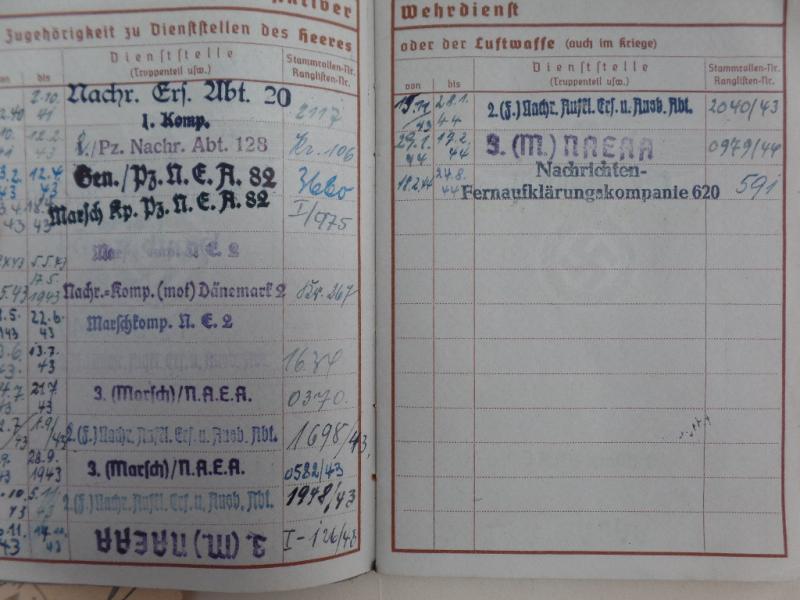 aktiver
Zugehörigkeit zu Dienststellen des Heeres
von bis
Dienststelle
(Truppenteil usw.)
Stammrollen-Nr.
Ranglisten-Nr.
2.10. 41
Nachr. Ers. Abt. 20
1. Komp.
2117
12.2. 43
2./Pz. Nachr. Abt. 128
Kr. 106
12.4. 43
Gen./Pz. N. E. A. 82
43
Marsch Kp. Pz. N. E. A. 82
I/975
N. E. 2
5.5.43
17.5. 1943
Nachr.-Komp. (mot) Dänemark 2
267
22.6. 43
Marschkomp. N. E. 2
13.7. 43
21.7. 43
3. (Marsch)/N.A.E.A.
0370.
2.(F.) Nachr. Aufkl. Ers. u. Ausb. Abt.
1698/43
28.9. 1943
3. (Marsch)/N.A.E.A.
0582/43
5.11. 43
2.(F.) Nachr. Aufkl. Ers. u. Ausb. Abt.
1948/43
43
3. (M.) NAEAA
I-126/43
Wehrdienst
oder der Luftwaffe (auch im Kriege)
von bis
Dienststelle
(Truppenteil usw.)
Stammrollen-Nr.
Ranglisten-Nr.
15.11. 43 28.1. 44
2.(F.) Nachr. Aufkl. Ers. u. Ausb. Abt.
2040/43
29.1. 44 17.2. 44
3. (M.) NAEAA
0979/44
18.2.44 24.8. 44
Nachrichten-
Fernaufklärungskompanie 620
591